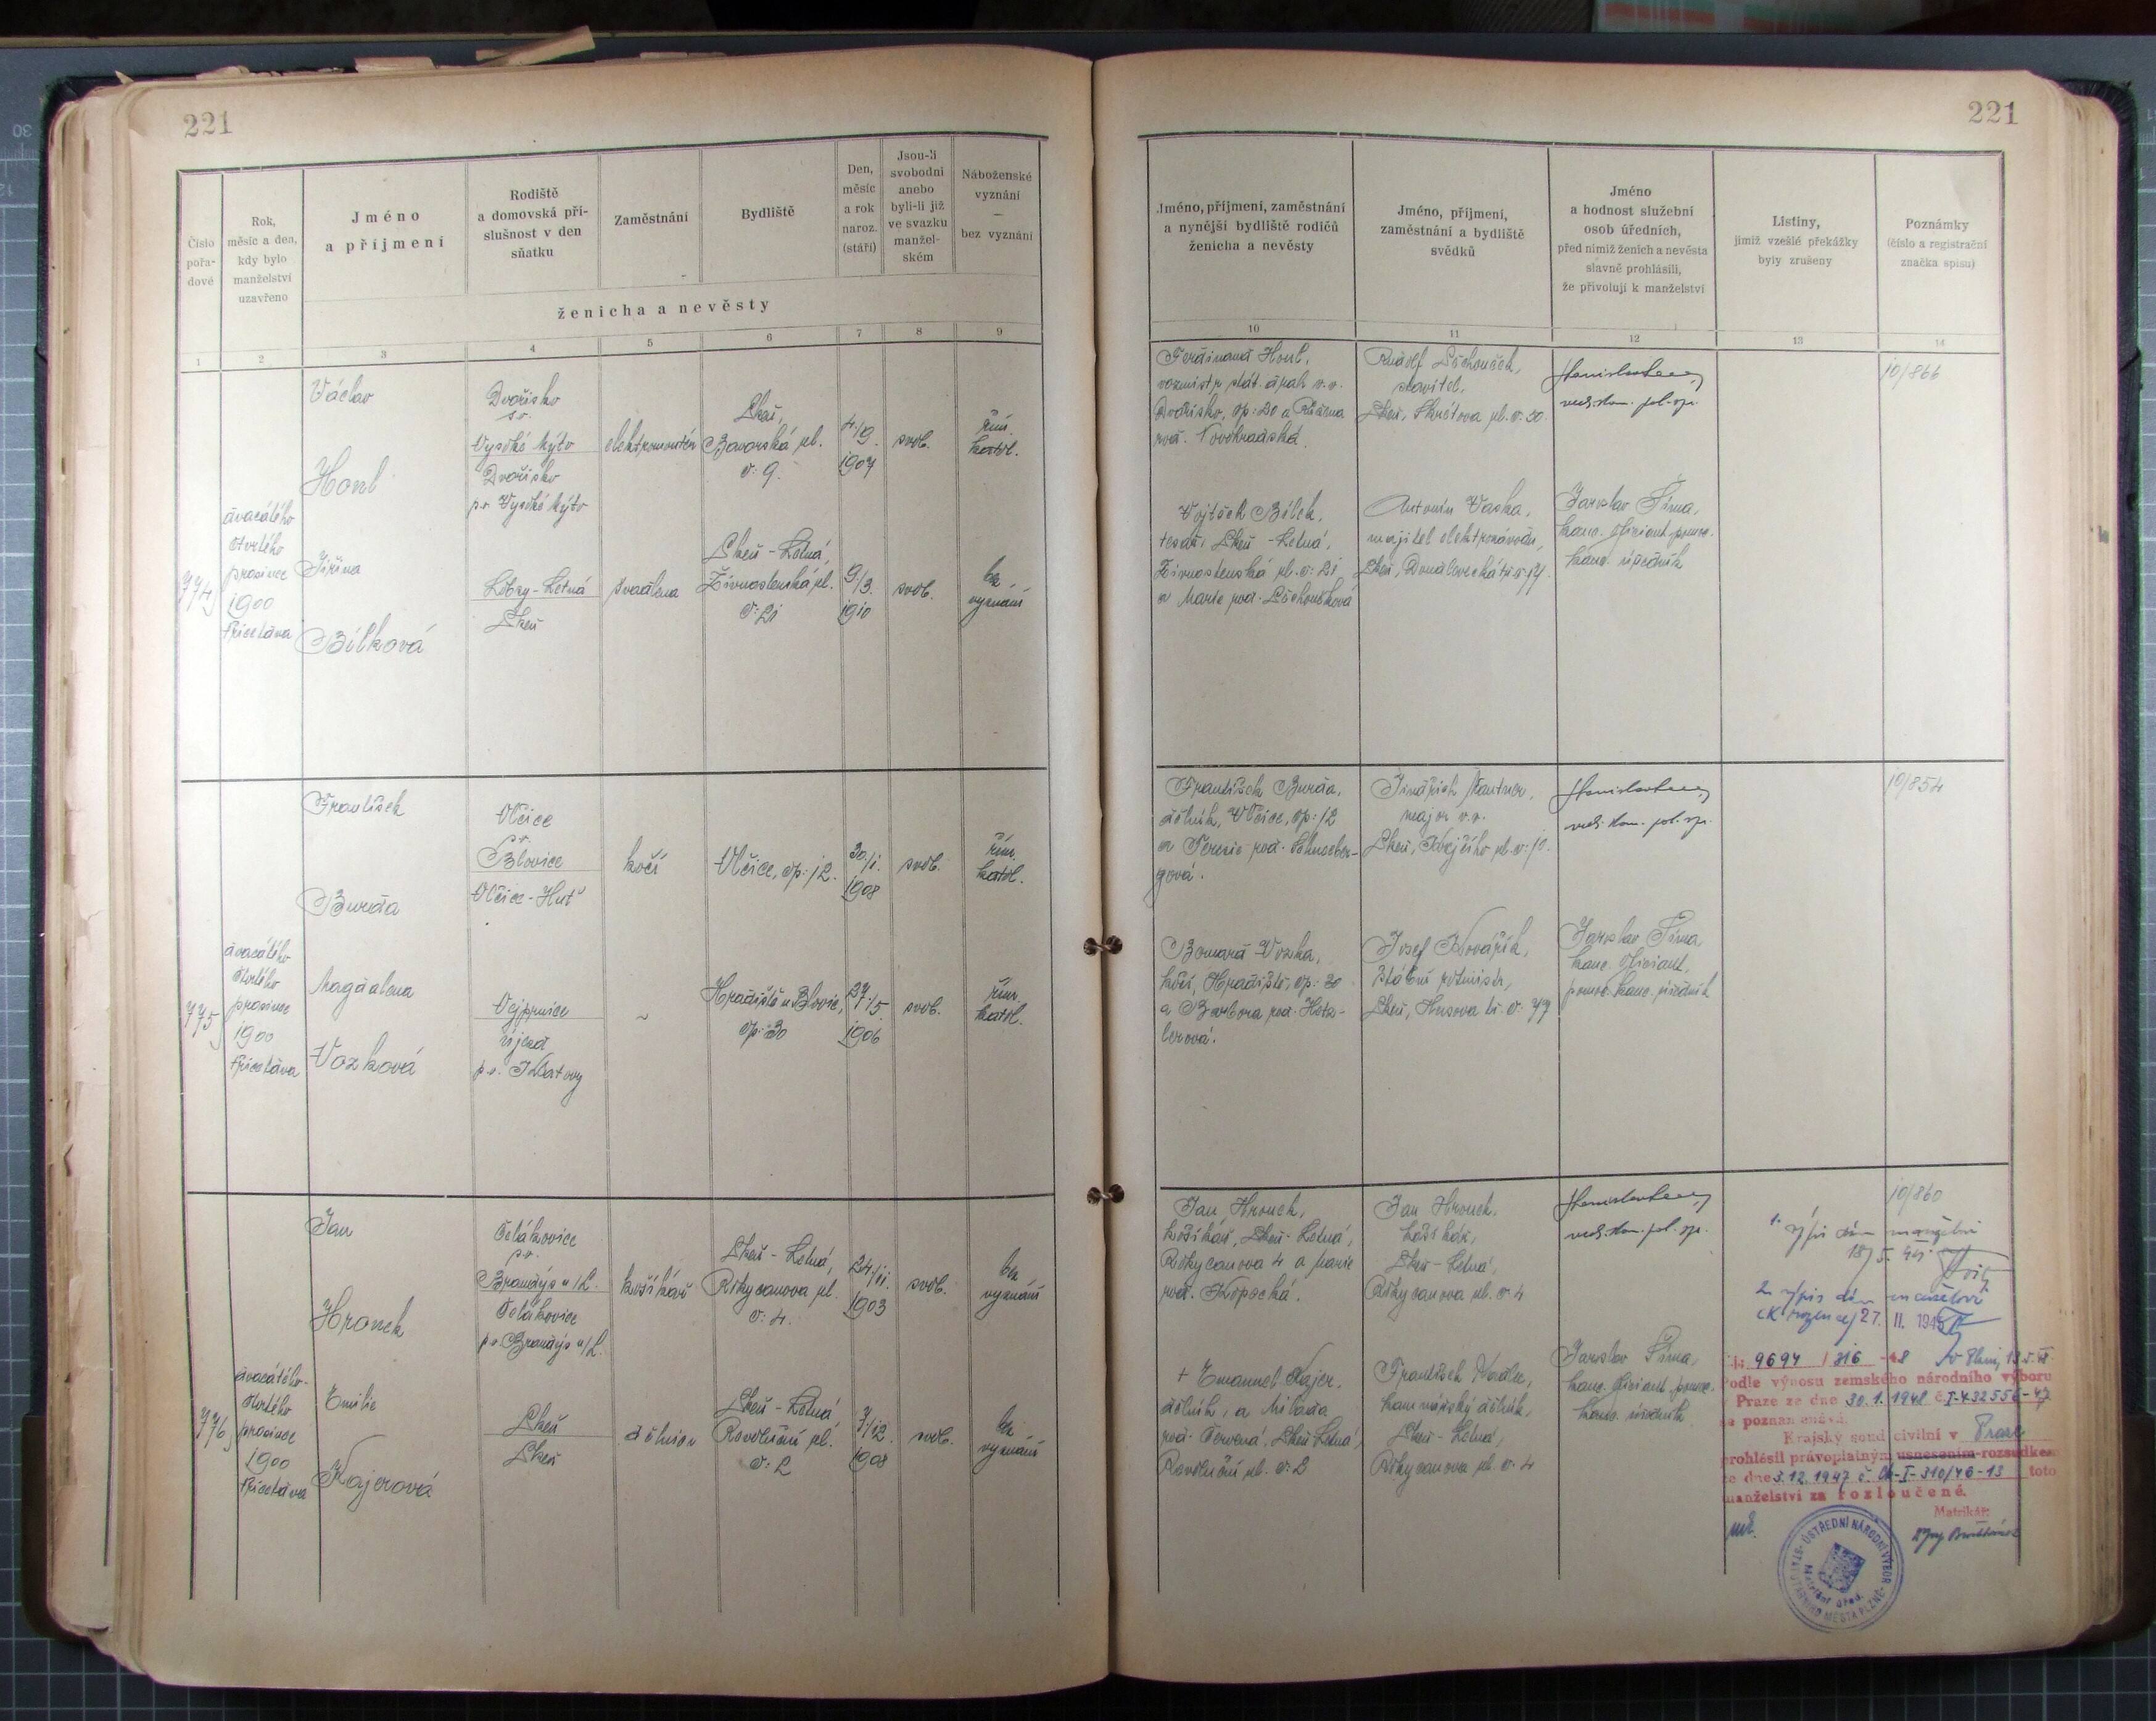 221
221
Číslo pořadové
Rok, měsíc a den, kdy bylo manželství uzavřeno
Jméno a příjmení
Rodiště a domovská příslušnost v den sňatku
Zaměstnání
Bydliště
Den, měsíc a rok naroz. (stáří)
Jsou-li svobodni anebo byli-li již ve svazku manželském
Náboženské vyznání — bez vyznání
ženicha a nevěsty
Jméno, příjmení, zaměstnání a nynější bydliště rodičů ženicha a nevěsty
Jméno, příjmení, zaměstnání a bydliště svědků
Jméno a hodnost služební osob úředních, před nimiž ženich a nevěsta slavně prohlásili, že přivolují k manželství
Listiny, jimiž vzešlé překážky byly zrušeny
Poznámky (číslo a registrační značka spisu)
1 2 3 4 5 6 7 8 9
10 11 12 13 14
774
dvacátého
čtvrtého
prosince
1900
třicet dva
Václav
Honl
Dvořisko
p.o.
Vysoké Mýto
Dvořisko
p.o. Vysoké Mýto
elektromontér
Plzeň,
Bavorská ul.
č: 9.
4./9.
1907
svob.
řím.
katol.
Jiřina
Bílková
Lobzy-Letná
Plzeň
švadlena
Plzeň-Letná,
Živnostenská ul.
č: 21
9./3.
1910
svob.
bez
vyznání
Ferdinand Honl,
vozmistr stát. drah v.v.
Dvořisko, čp: 20 a Růžena
roz. Novohradská.
Rudolf Löschouček,
stavitel.
Plzeň, Škrétova ul. č. 30.
10/866
Vojtěch Bílek,
tesař, Plzeň-Letná,
Živnostenská ul. č: 21
a Marie roz.
Antonín Vaska,
majitel elektrozávodu,
Jaroslav Šíma,
kanc. oficiant pomoc.
kanc. úředník
775
dvacátého
čtvrtého
prosince
1900
třicet dva
František
Burda
Vlčice
p.o.
Blovice
Vlčice-Huť
kočí
Vlčice, čp: 12.
30./1.
1908
svob.
řím.
katol.
Magdalena
Vozková
Vejprnice
Újezd
Hradiště u Blovic,
čp: 30
27./5.
1906
svob.
řím.
katol.
František Burda,
dělník, Vlčice, čp: 12
a Terezie roz.
Jindřich Kantner,
major v.v.
10/854
Bernard Vozka,
kočí, Hradiště, čp: 30
a Barbora roz.
Josef Kovářík,
štábní rotmistr,
Plzeň, Husova tř. č: 77
Jaroslav Šíma,
kanc. oficiant,
pomoc. kanc. úředník
776
dvacátého
čtvrtého
prosince
1900
třicet dva
Jan
Hronek
Čelákovice
p.o.
Brandýs n/L.
Čelákovice
p.o. Brandýs n/L.
košíkář
Plzeň-Letná,
Rokycanova ul.
č: 4.
24./11.
1903
svob.
bez
vyznání
Emilie
Kajerová
Plzeň
Plzeň
dělnice
Plzeň-Letná,
Revoluční ul.
č: 2
7./12.
1908
svob.
bez
vyznání
Jan Hronek,
košíkář, Plzeň-Letná,
Rokycanova 4 a Marie
roz. Kopecká.
Jan Hronek,
košíkář,
Plzeň-Letná,
Rokycanova ul. č. 4
10/860
+ Emanuel Kajer,
dělník, a Milada
roz. Červená, Plzeň-Letná,
Revoluční ul. č: 2
František
kamenický dělník,
Plzeň-Letná,
Rokycanova ul. č. 4
Jaroslav Šíma,
kanc. oficiant pomoc.
kanc. úředník
27. II. 1945
Čj: 9694 / 316 -48 V Plzni, 13.5.48
Podle výnosu zemského národního výboru
v Praze ze dne 30.1.1948 č. I-432556-47
se poznamenává:
Krajský soud civilní v Praze
prohlásil právoplatným usnesením-rozsudkem
ze dne 3.12.1947 č. Ck-I-310/46-13 toto
manželství za rozloučené.
Matrikář:
ÚSTŘEDNÍ NÁRODNÍ VÝBOR STATUTÁRNÍHO MĚSTA PLZNĚ
Matriční úřad.